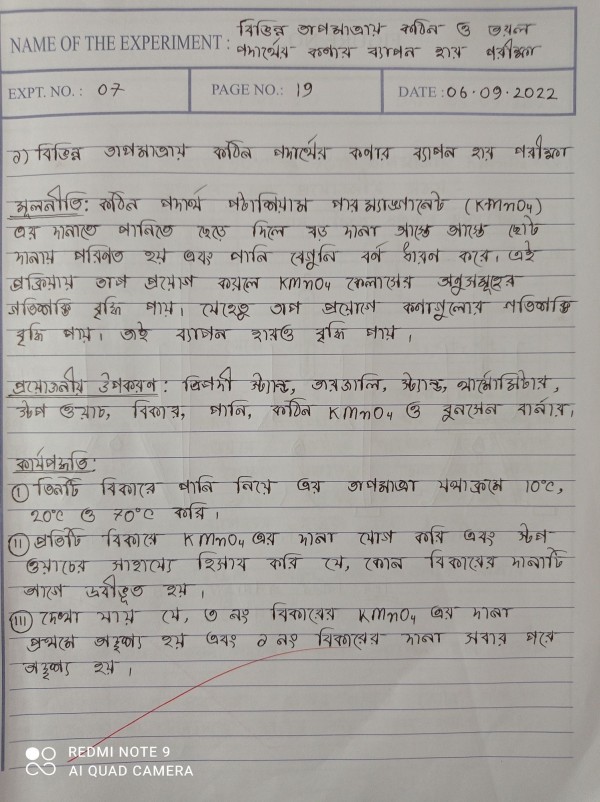 NAME OF THE EXPERIMENT : বিভিন্ন তাপমাত্রায় কঠিন ও তরল
পদার্থের কণার ব্যাপন হার পরীক্ষা
EXPT. NO. : 07 PAGE NO.: 19 DATE : 06.09.2022
১) বিভিন্ন তাপমাত্রায় কঠিন পদার্থের কণার ব্যাপন হার পরীক্ষা
মূলনীতি: কঠিন পদার্থ পটাসিয়াম পারম্যাঙ্গানেট (KMnO4)
এর দানাকে পানিতে ছেড়ে দিলে বড় দানা আস্তে আস্তে ছোট
দানায় পরিণত হয় এবং পানি বেগুনি বর্ণ ধারন করে। এই
প্রক্রিয়ায় তাপ প্রয়োগ করলে KMnO4 কেলাসের অনুসমূহের
গতিশক্তি বৃদ্ধি পায়। যেহেতু তাপ প্রয়োগে কণাগুলোর গতিশক্তি
বৃদ্ধি পায়। তাই ব্যাপন হারও বৃদ্ধি পায়।
প্রয়োজনীয় উপকরণ: ত্রিপদী স্ট্যান্ড, তারজালি, স্ট্যান্ড, থার্মোমিটার,
স্টপ ওয়াচ, বিকার, পানি, কঠিন KMnO4 ও বুনসেন বার্নার।
কার্যপদ্ধতি:
(I) তিনটি বিকারে পানি নিয়ে এর তাপমাত্রা যথাক্রমে 10°C,
20°C ও 70°C করি।
(II) প্রতিটি বিকারে KMnO4 এর দানা যোগ করি এবং স্টপ
ওয়াচের সাহায্যে হিসাব করি যে, কোন বিকারের দানাটি
আগে দ্রবীভূত হয়।
(III) দেখা যায় যে, ৩ নং বিকারের KMnO4 এর দানা
প্রথমে অদৃশ্য হয় এবং ১ নং বিকারের দানা সবার পরে
অদৃশ্য হয়।
REDMI NOTE 9
AI QUAD CAMERA